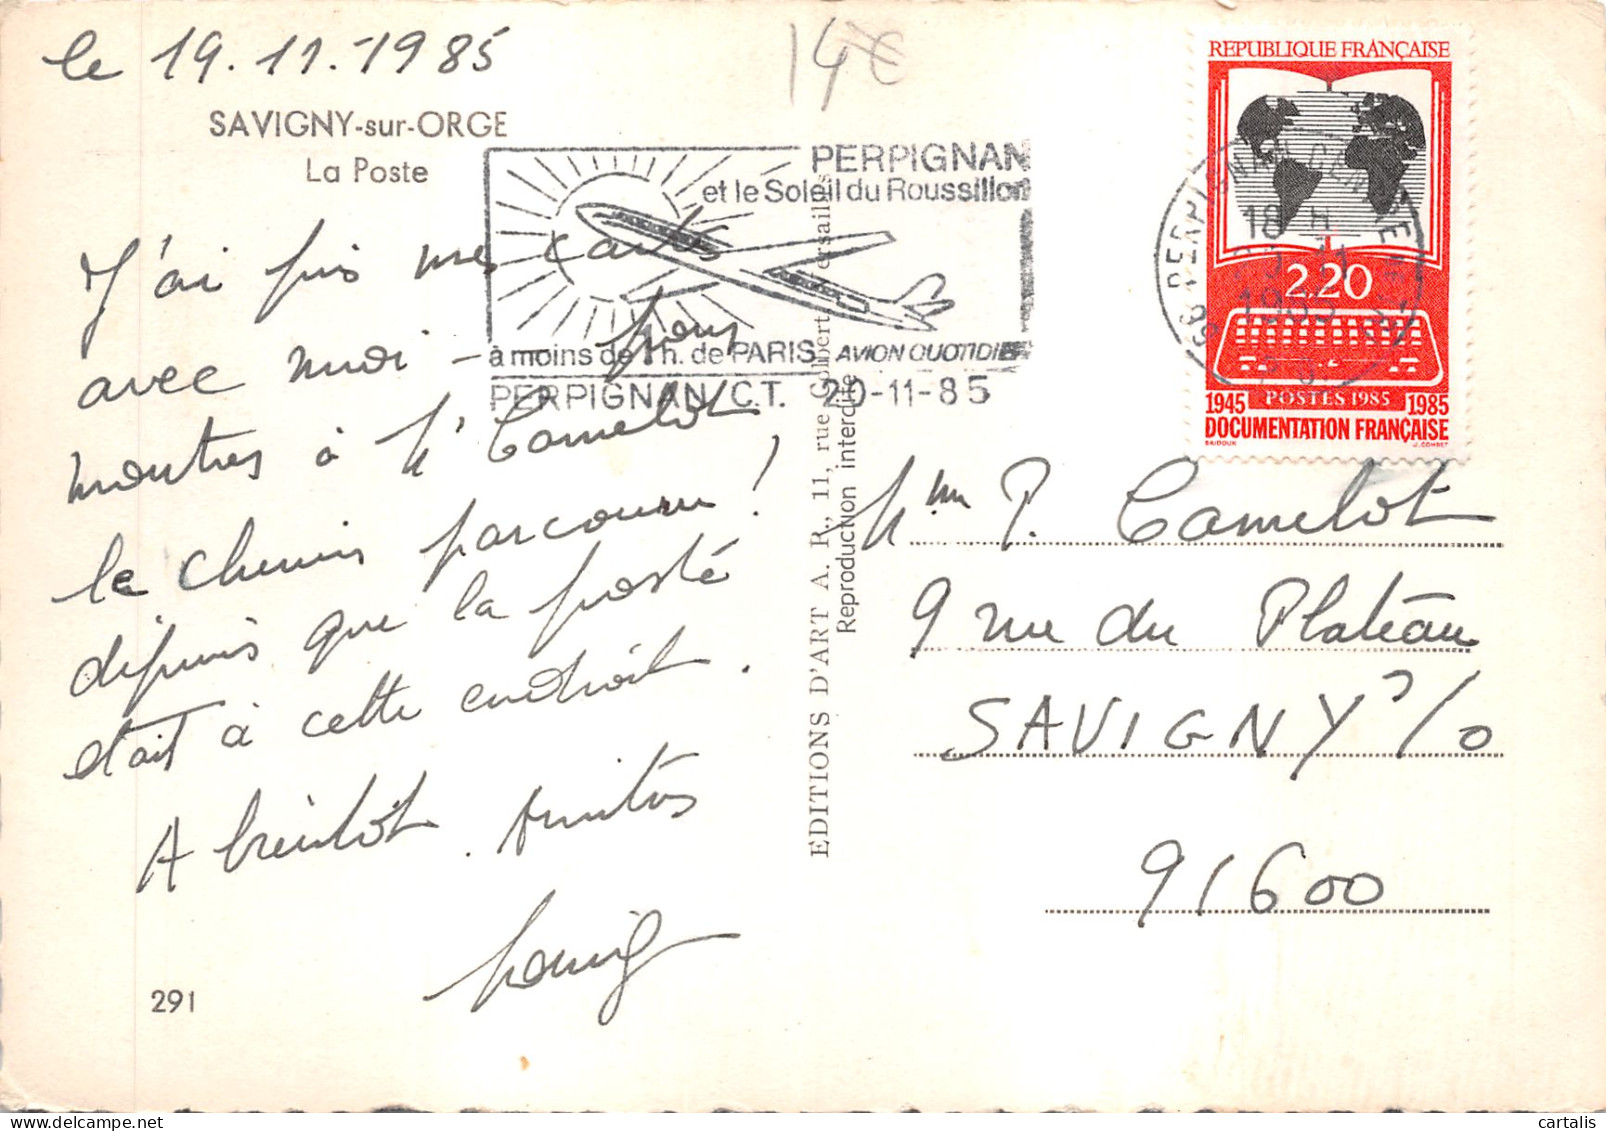 le 19.11.1985
SAVIGNY-sur-ORGE
La Poste
14€
PERPIGNAN
et le Soleil du Roussillon
à moins de 1 h. de PARIS AVION QUOTIDIEN
PERPIGNAN C.T. 20-11-85
J'ai pris mes cartes
avec moi - pour
montrer à M. Camelot
le chemin parcouru !
depuis que la poste
était à cette endroit.
A bientôt. Amitiés
291
EDITIONS D'ART A. R., 11, rue Colbert Versailles
Reproduction interdite
REPUBLIQUE FRANÇAISE
2,20
POSTES 1985
1945 1985
DOCUMENTATION FRANÇAISE
BAIDOUX J. COMBET
PERPIGNAN
18 H
11
Mme P. Camelot
9 rue du Plateau
SAVIGNY s/o
91600
cartalis